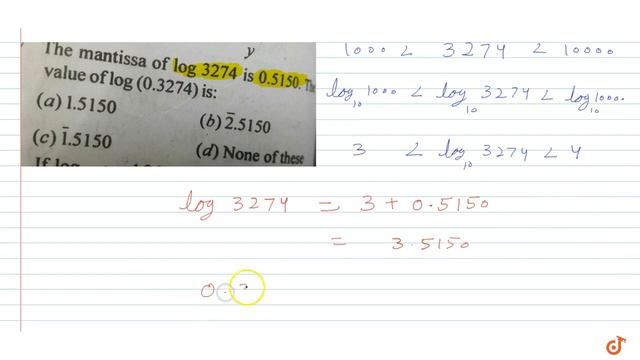 y
The mantissa of log 3274 is 0.5150. The
value of log (0.3274) is:
(a) 1.5150
(b) 2̄.5150
(c) 1̄.5150
(d) None of these
If log
1000 < 3274 < 10000
log₁₀ 1000 < log₁₀ 3274 < log₁₀ 1000.
3 < log₁₀ 3274 < 4
log 3274 = 3 + 0.5150
= 3.5150
0.